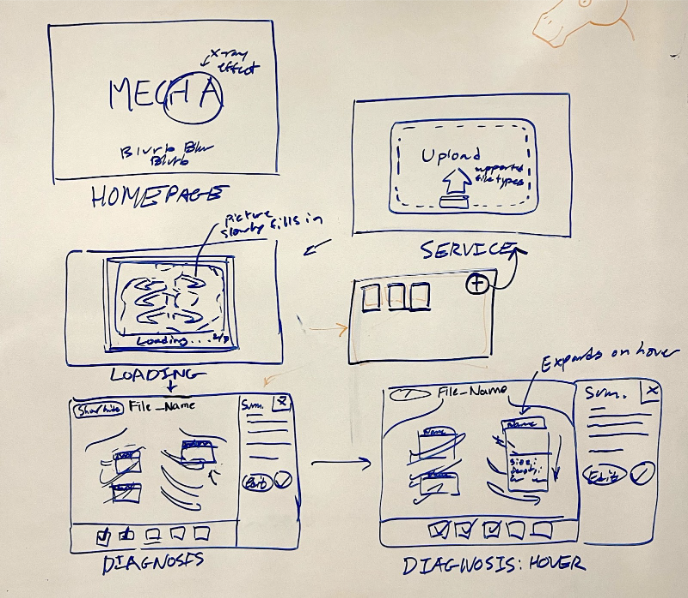 x-ray
effect
MECHA
Blurb Blur
Blurb
HOMEPAGE
Upload
supported
file types
SERVICE
picture
slowly fills in
Loading...
LOADING
File_Name
Sum.
X
Edit
DIAGNOSES
Expands on hover
File_Name
Name
Size:
Density:
Sum.
X
Edit
DIAGNOSIS: HOVER